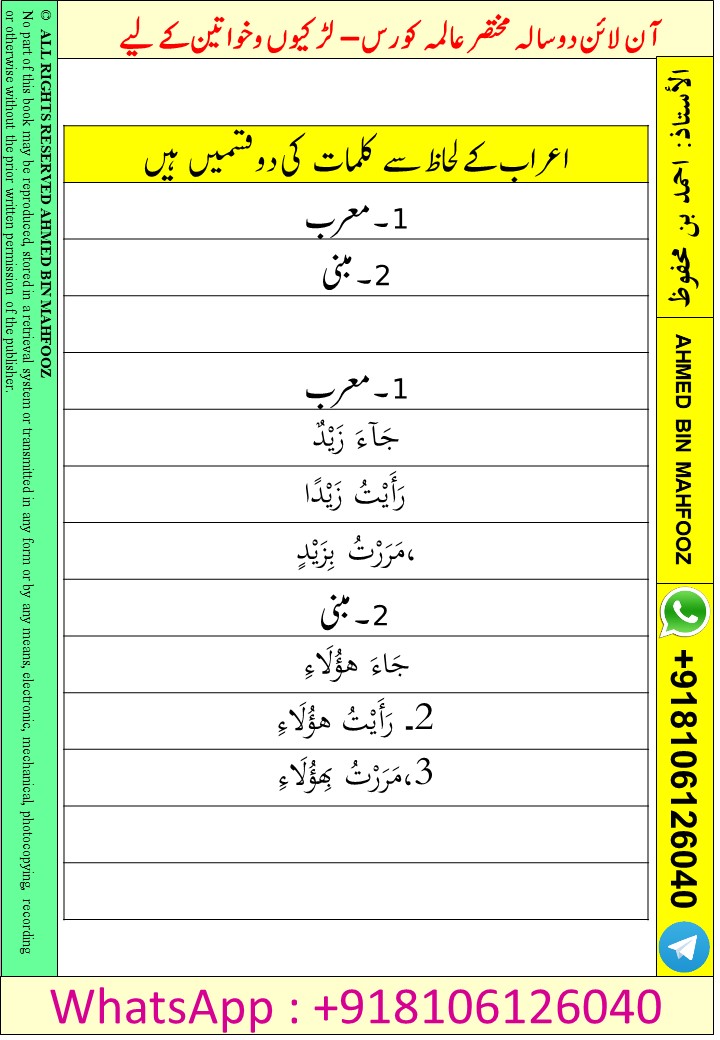 آن لائن دو سالہ مختصر عالمہ کورس – لڑکیوں و خواتین کے لیے
اعراب کے لحاظ سے کلمات کی دو قسمیں ہیں
1۔ معرب
2۔ مبنی
1۔ معرب
جَآءَ زَيْدٌ
رَأَيْتُ زَيْدًا
،مَرَرْتُ بِزَيْدٍ
2۔ مبنی
جَاءَ هؤُلَاءِ
2۔ رَأَيْتُ هؤُلَاءِ
3،مَرَرْتُ بِهؤُلَاءِ
الأستاذ: احمد بن محفوظ
AHMED BIN MAHFOOZ
+918106126040
© ALL RIGHTS RESERVED AHMED BIN MAHFOOZ
No part of this book may be reproduced, stored in a retrieval system or transmitted in any form or by any means, electronic, mechanical, photocopying, recording
or otherwise without the prior written permission of the publisher.
WhatsApp : +918106126040